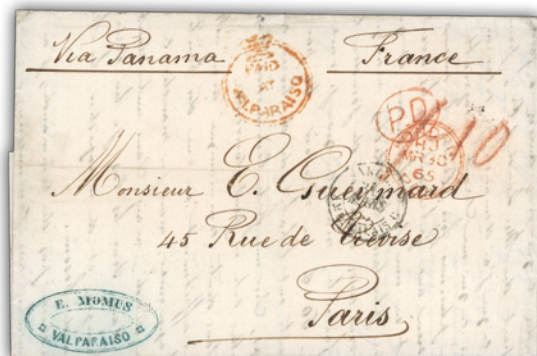 Via Panama France
PAID
AT
VALPARAISO
P.D.
1/10
65
Monsieur E. Gueimard
45 Rue de Trévise
Paris
E. MOMUS
VALPARAISO